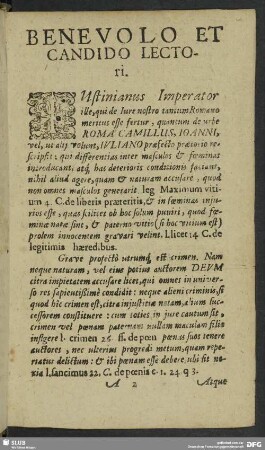 BENEVOLO ET
CANDIDO LECTO-
ri.
IUstinianus Imperator
ille, qui de Iure nostro tantum Romano
meritus esse fertur, quantum de urbe
ROMA CAMILLUS, IOANNI,
vel, ut alij volunt, IVLIANO præfecto prætorio re-
scripsit: qui differentias inter masculos & fœminas
introducant, atq; has deterioris conditionis faciant,
nihil aliud agere, quam & naturam accusare, quod
non omnes masculos generarit. leg Maximum viti-
um 4. C. de liberis præteritis, & in fœminas inju-
rios esse, quas scilicet ob hoc solum puniri, quod fœ-
minæ natæ sint, & paterno vitio (si hoc vitium est)
prolem innocentem gravari velint. l. licet 4 C. de
legitimis hæred. bus.
Grave profectò utrumq; est crimen. Nam
neque naturam, vel ejus potius auctorem DEUM
citra impietatem accusare licet, qui omnes in univer-
so res sapientissimè condidit: neque alieni criminis, si
quod hîc crimen est, citra injustitiæ notam, alium suc-
cessorem constituere: cum toties in jure cautum sit,
crimen vel pœnam paternam nullam maculam filio
infigere l. crimen 26 ff. de pœn pœnas suos tenere
auctores, nec ulterius progredi metum, quam repe-
riatur delictum: & ibi pœnam esse debere, ubi sit no-
xia l. sancimus 22. C. de pœnis c. 1. 24 q 3.
A 2 Atque
SLUB
DFG